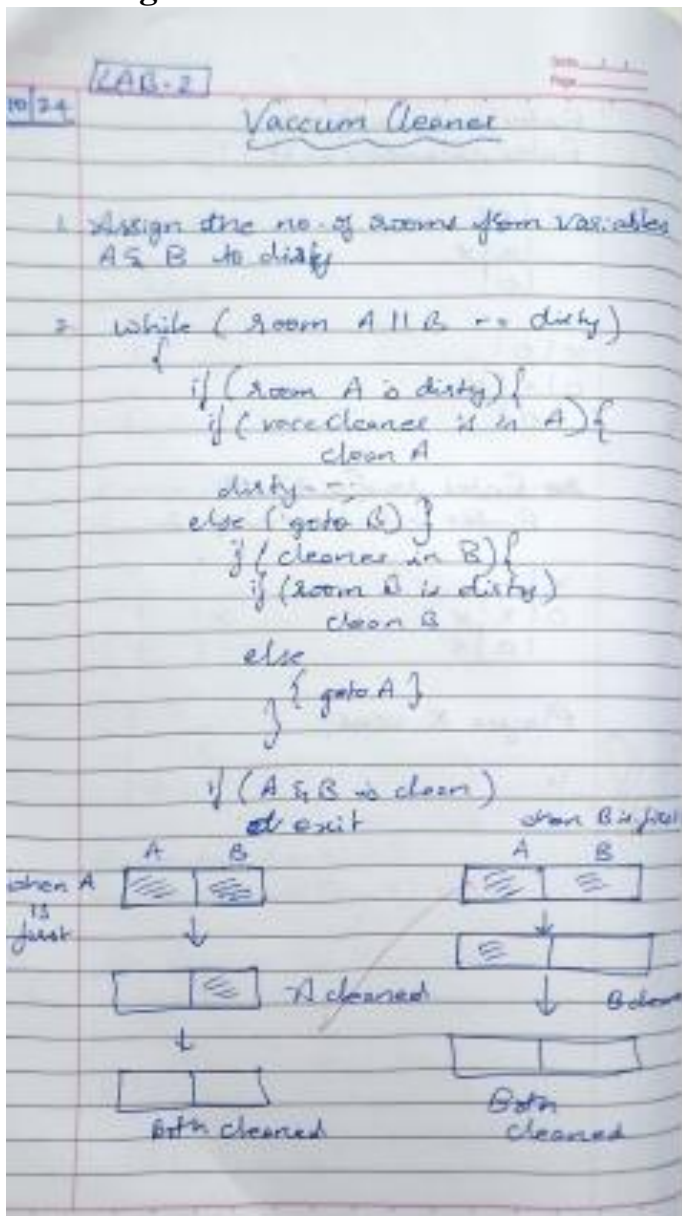 LAB-2
Date
Page
10/24
Vaccum Cleaner
1. Assign the no. of rooms from variables
A & B to dirty
2. while ( room A || B == dirty)
{
if (room A is dirty) {
if ( cleaner is in A) {
clean A
dirty
else (goto B) }
if ( cleaner in B) {
if (room B is dirty)
clean B
else
{ goto A }
}
if (A & B is clean)
exit
when A
is
first
A B
A cleaned
Both cleaned
when B is first
A B
B
Both
cleaned